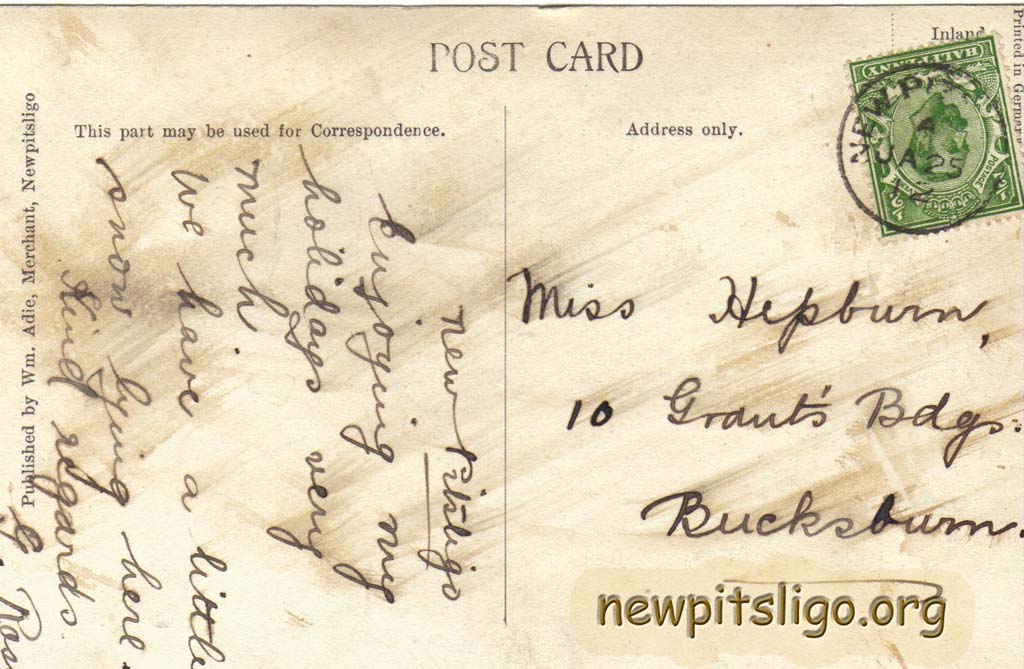 POST CARD
Inland
Printed in Germany
This part may be used for Correspondence.
Address only.
Published by Wm. Adie, Merchant, Newpitsligo
HALFPENNY
POSTAGE
NEW PIT
A
JA 25
12
New Pitsligo
Enjoying my
holidays very
much
We have a little
snow lying here.
Kind regards
G. Ross
Miss Hepburn,
10 Grant's Bdgs.
Bucksburn.
newpitsligo.org